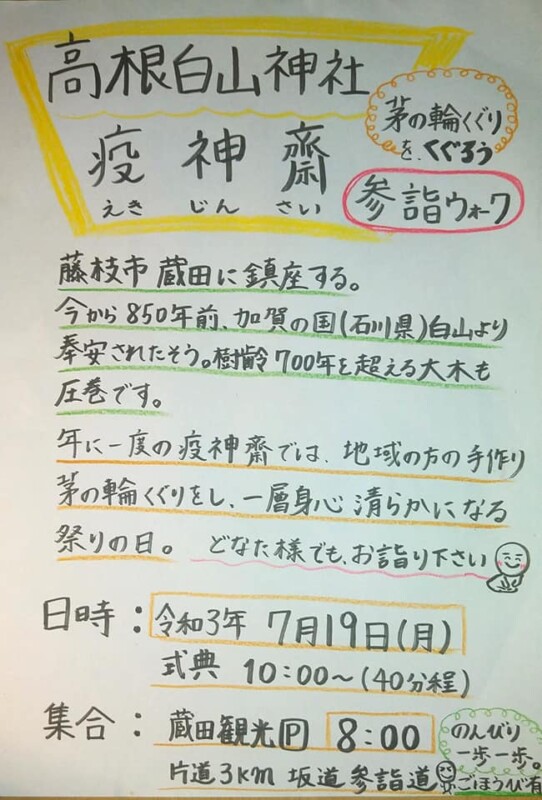 高根白山神社
疫神齋
えきじんさい
茅の輪くぐり
を、くぐろう
参詣ウォーク
藤枝市蔵田に鎮座する。
今から850年前、加賀の国(石川県)白山より
奉安されたそう。樹齢700年を超える大木も
圧巻です。
年に一度の疫神齋では、地域の方の手作り
茅の輪くぐりをし、一層身心清らかになる
祭りの日。どなた様でも、お詣り下さい
日時：令和3年 7月19日(月)
式典 10:00～(40分程)
集合：蔵田観光P 8:00
片道3km 坂道参詣道
のんびり
一歩一歩。
ごほうび有